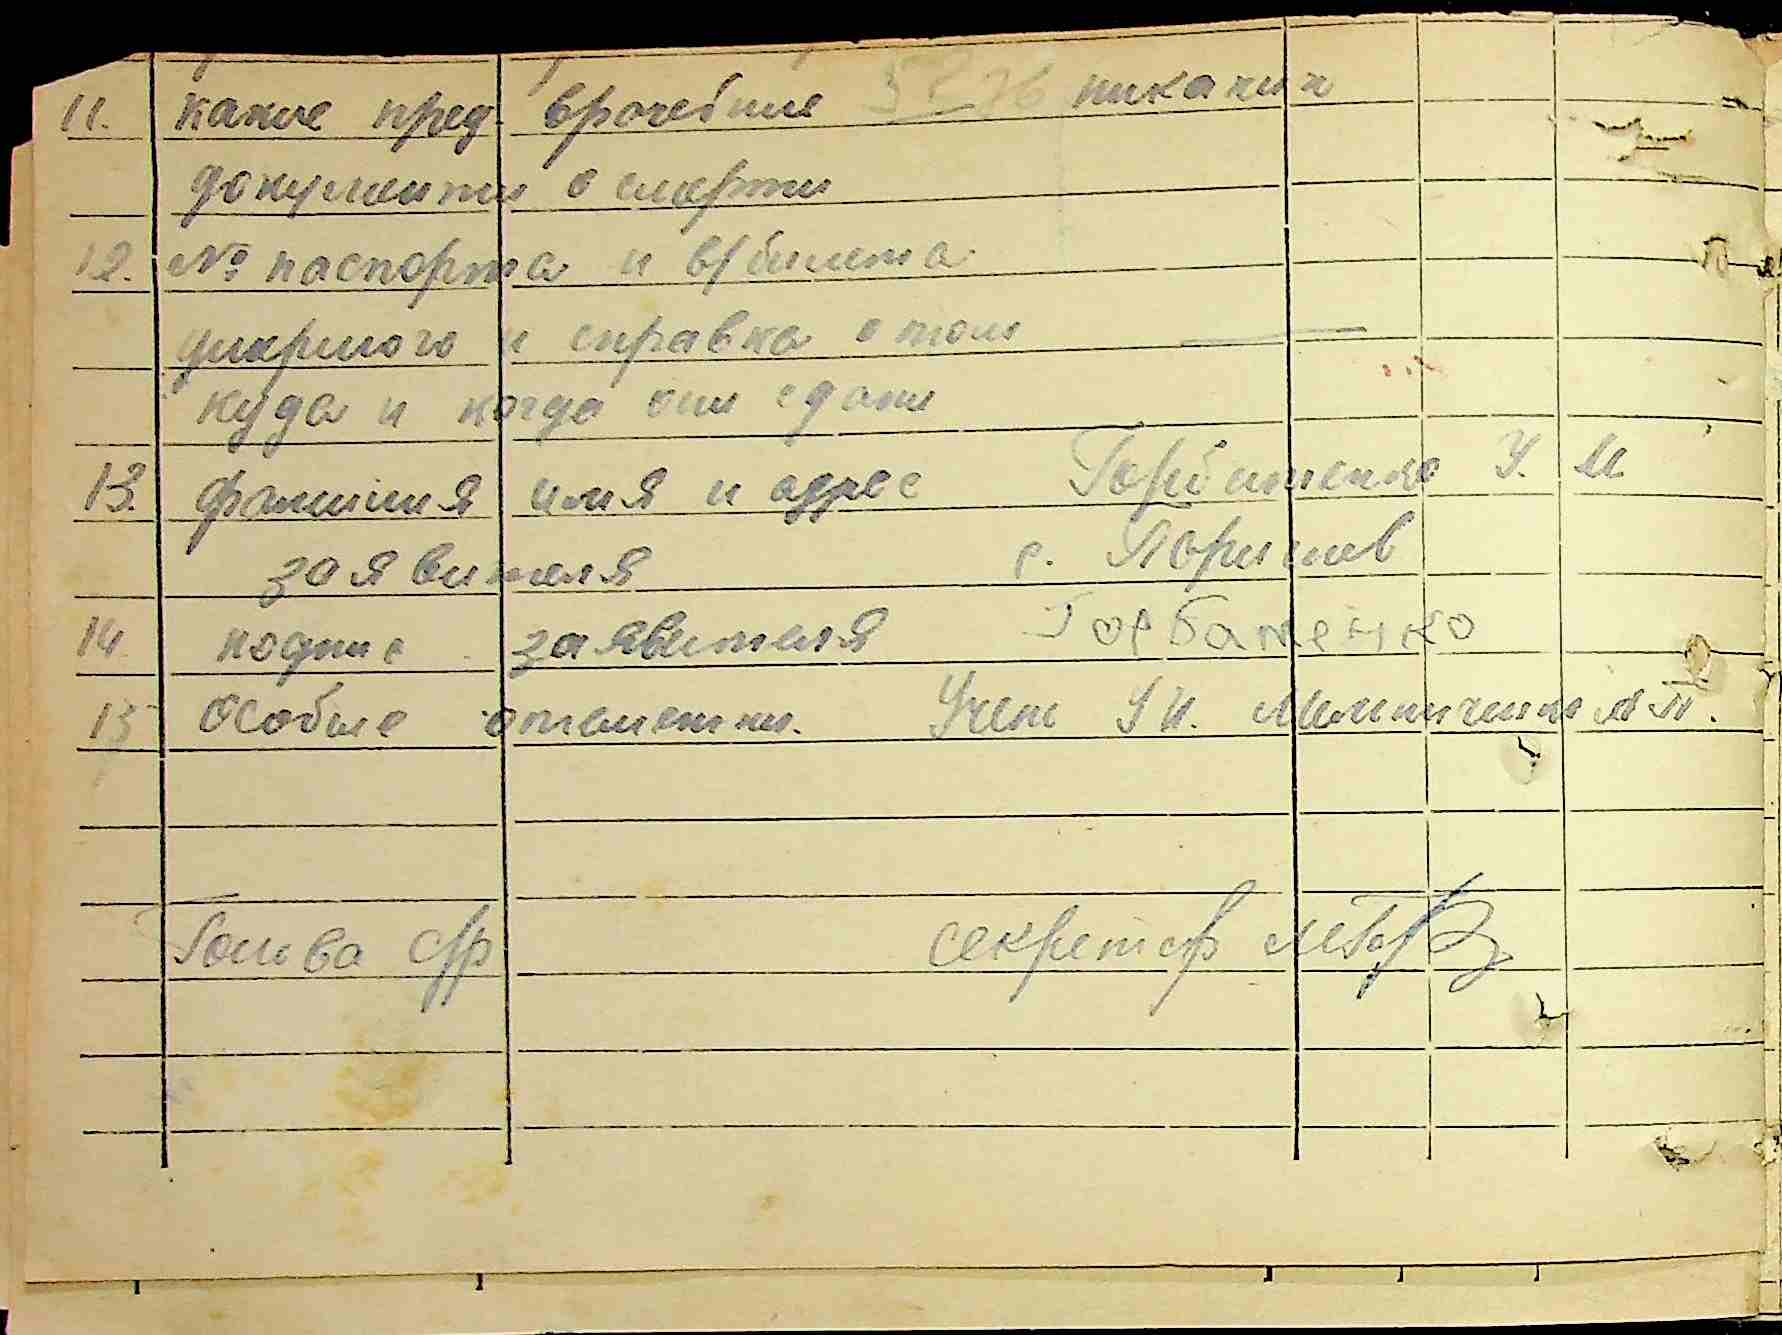 11. какие пред врачебние никаких
документи о смерти
12. № паспорта и в/билета
умершого и справка о том
куда и когда они сдани
13. фамилия имя и адрес Горбатенко У. М
заявителя с.
14 подпис заявителя Горбатенко
15 особие отметки.
Голова с/р секретар